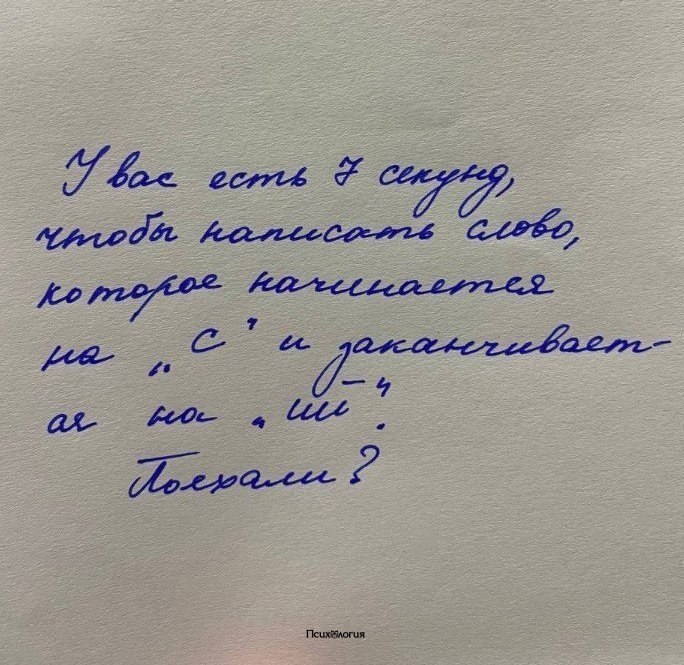 У вас есть 7 секунд,
чтобы написать слово,
которое начинается
на „С" и заканчивает-
ся на „т".
Поехали?
Психология